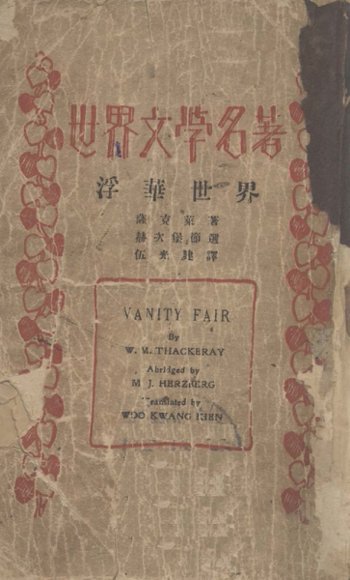 世界文學名著
浮華世界
薩克萊著
赫次堡節選
伍光建譯
VANITY FAIR
By
W. M. THACKERAY
Abridged by
M J. HERZBERG
Translated by
WOO KWANG KIEN